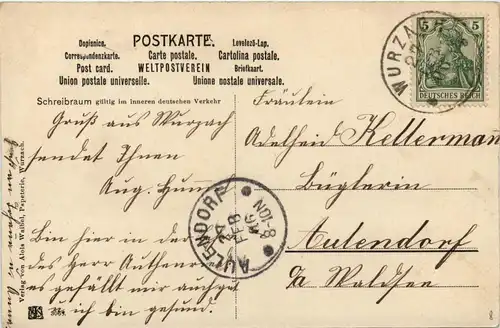 POSTKARTE.
Dopisnice. Levelező-Lap.
Correspondenzkarte. Carte postale. Cartolina postale.
Post card. WELTPOSTVEREIN Briefkaart.
Union postale universelle. Unione postale universale.
Schreibraum gültig im inneren deutschen Verkehr
Gruß aus Wurzach
sendet Ihnen
Aug.
Bin hier in der
des Herr
es gefällt mir
ich bin gesund.
Verlag von Alois Waibel, Papeterie, Wurzach.
Fräulein
Adelheid Kellerman
Büglerin
Aulendorf
o/a Waldsee
WURZACH
5 5
DEUTSCHES REICH
AULENDORF
27
FEB
06